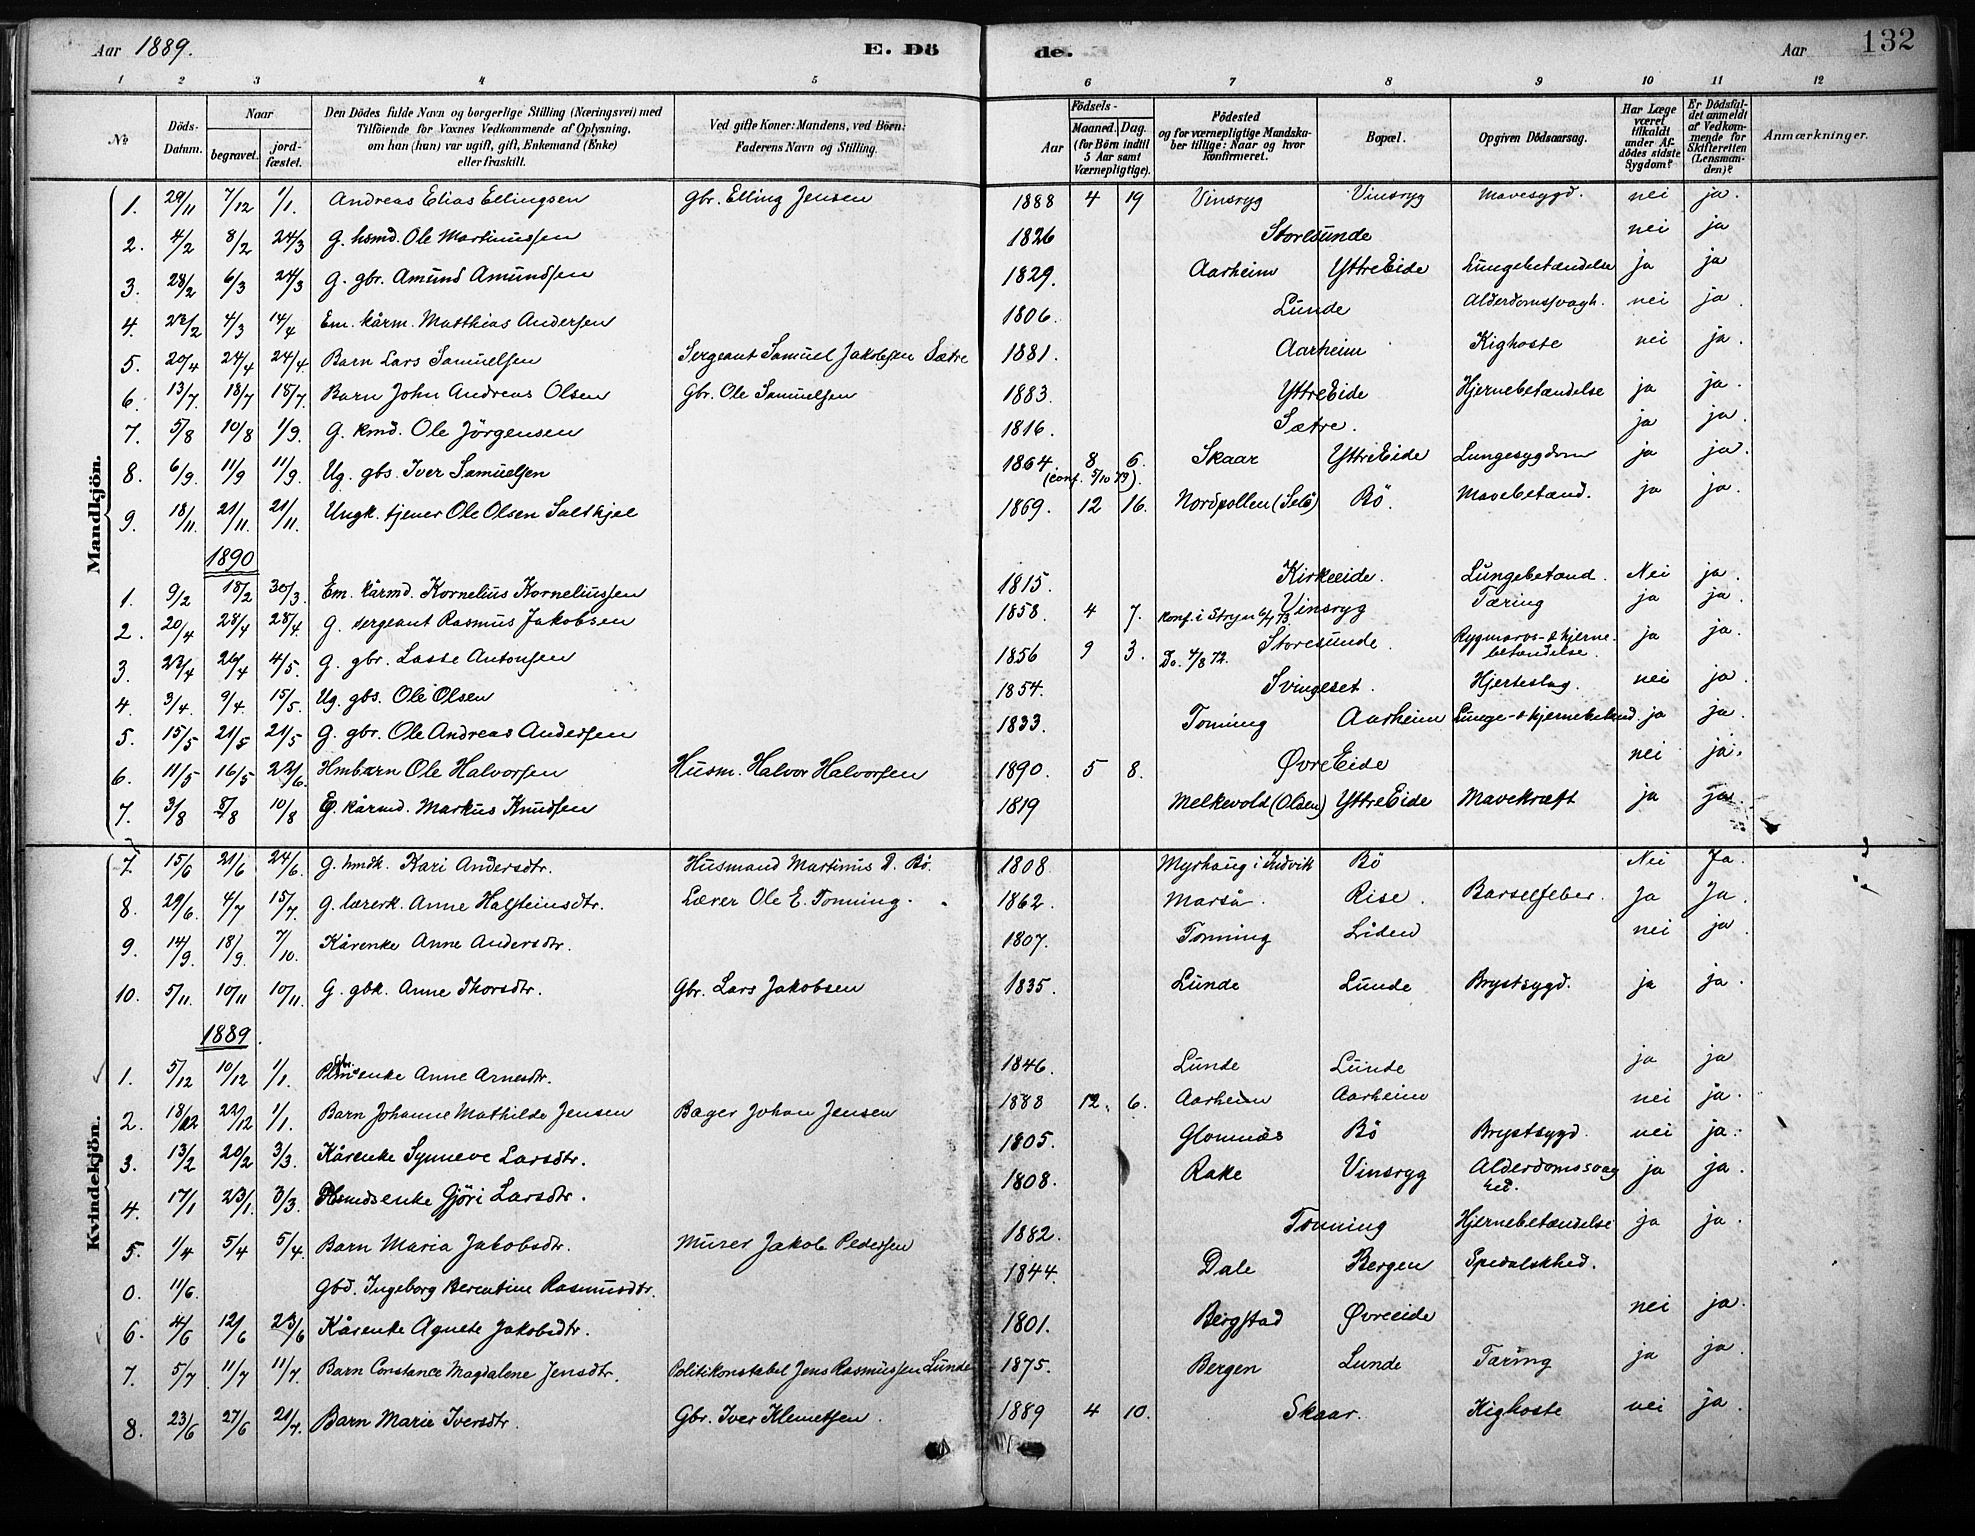 Aar 1889. E. Dö de. Aar 132
1 2 3 4 5 6 7 8 9 10 11 12
№ Döds-Datum. Naar begravet. jord-fæstet. Den Dödes fulde Navn og borgerlige Stilling (Næringsvei) med Tilföiende for Voxnes Vedkommende af Oplysning, om han (hun) var ugift, gift, Enkemand (Enke) eller fraskilt. Ved gifte Koner: Mandens, ved Börn: Faderens Navn og Stilling. Födsels- Aar Maaned. Dag. (for Börn indtil 5 Aar samt Værnepligtige). Födested og for værnepligtige Mandskaber tillige: Naar og hvor konfirmeret. Bopæl. Opgiven Dödsaarsag. Har Læge været tilkaldt under Afdödes sidste Sygdom? Er Dödsfaldet anmeldt af Vedkommende for Skifteretten (Lensmanden)? Anmærkninger.
Mandkjön.
1. 29/11 7/12 1/1. Andreas Elias Ellingsen Gbr. Elling Jensen 1888 4 19 Vinsryg Vinsryg Mavesygd. nei ja.
2. 4/2 8/2 24/3 G. hsmd. Ole Martinussen 1826 Storesunde nei ja
3. 28/2 6/3 24/3 G. gbr. Amund Amundsen 1829. Aarheim YttreEide Lungebetændelse ja ja
4. 22/2 4/3 14/4 Em. kårm. Matthias Andersen 1806. Lunde Alderdomssvagh. nei ja.
5. 20/4 24/4 24/4 Barn Lars Samuelsen Sergeant Samuel Jakobsen Sætre 1881. Aarheim Kighoste nei ja.
6. 13/7. 18/7 18/7. Barn John Andreas Olsen Gbr. Ole Samuelsen 1883. YttreEide Hjernebetændelse ja ja.
7. 5/8 10/8 1/9. G. kmd. Ole Jörgensen 1816. Sætre. ja ja.
8. 6/9. 11/9 11/9. Ug. gbs. Iver Samuelsen 1864. 8 6. (conf. 5/10 79). Skaar YttreEide Lungesygdom ja ja.
9. 18/11. 21/11. 21/11. Ungk. tjener Ole Olsen Saltkjel 1869. 12 16. Nordpollen (Selö) Bö. Mavebetænd. ja ja.
1890
1. 9/2 18/2 30/3. Em. kårmd. Kornelius Korneliussen 1815. Kirkeeide. Lungebetænd. Nei ja.
2. 20/4 28/4 28/4. G. sergeant Rasmus Jakobsen 1858. 4 7. Konf. i Stryn 6/7 73 Vinsryg Tæring ja ja.
3. 22/4 26/4 4/5. G. gbr. Lasse Antonsen 1856 9 3. Do. 4/8 72. Storesunde. Rygmarvs- & hjernebetændelse. ja ja.
4. 3/4. 9/4. 15/5. Ug. gbs. Ole Olsen 1854. Svingeset. Hjerteslag. nei ja.
5. 15/5 21/5 21/5 G. gbr. Ole Andreas Andersen 1833. Tonning Aarheim Lunge- & hjernebetænd ja ja.
6. 11/5 16/5 22/6. Hmbarn Ole Halvorsen Husm. Halvor Halvorsen 1890. 5 8. ØvreEide nei ja.
7. 3/8 8/8 10/8 kårmd. Markus Knudsen 1819 Melkevold (Olden) YttreEide Mavekræft ja ja.
Kvindekjön.
7. 15/6 21/6 24/6. G. hmdk. Kari Andersdtr. Husmand Martinus D. Bö. 1808. Myrhaug i Indvik Bö Nei Ja.
8. 29/6. 4/7 15/7. G. lærerk. Anne Halsteinsdtr. Lærer Ole E. Tonning. 1862. Marså. Rise. Barselfeber. Ja Ja.
9. 14/9. 18/9. 7/10. Kårenke Anne Andersdtr. 1807. Tonning Liden nei ja.
10. 5/11. 10/11 10/11. G. gbk. Anne Thorsdtr. Gbr. Lars Jakobsen 1835. Lunde Lunde Brystsygd. ja ja.
1889.
1. 5/12 10/12 1/1. enke Anne Arnesdtr. 1846. Lunde Lunde ja ja
2. 18/12 22/12 1/1. Barn Johanne Mathilde Jensen Bager Johan Jensen 1888 12. 6. Aarheim Aarheim nei ja.
3. 13/2 20/2 3/3. Kårenke Synneve Larsdtr. 1805. Glomnæs Bö Brystsygd. nei ja.
4. 17/1 23/1. 3/3. enke Gjöri Larsdtr. 1808. Rake Vinsryg Alderdomssvaghed. ja ja.
5. 1/4 5/4 5/4. Barn Maria Jakobsdtr. Murer Jakob Pedersen 1882. Tonning Hjernebetændelse ja ja.
0. 11/6. Gbd. Ingeborg Berentine Rasmusdtr. 1844. Dale Bergen Spedalskhed.
6. 4/6 12/6 23/6 Kårenke Agnete Jakobsdtr. 1801. Bergstad Øvreeide nei ja.
7. 5/7 11/7 11/7. Barn Constance Magdalene Jensdtr. Politikonstabel Jens Rasmussen Lunde 1875. Bergen Lunde Tæring ja ja.
8. 23/6 27/6 21/7. Barn Marie Iversdtr. Gbr. Iver Klemetsen. 1889 4 10. Skaar. Kighoste nei ja.